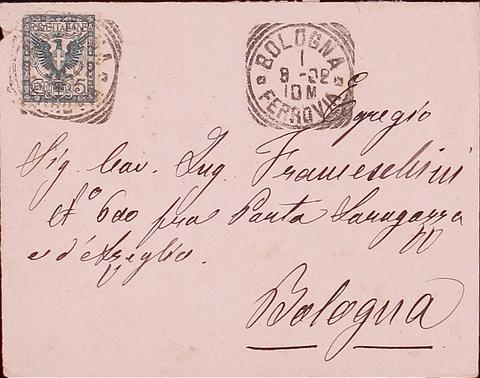 POSTE ITALIANE
5
BOLOGNA
1
8-02
10M
FERROVIA
Egregio
Sig. Cav. Ing. Franceschini
fra Porta Saragozza
e d'Azeglio.
Bologna